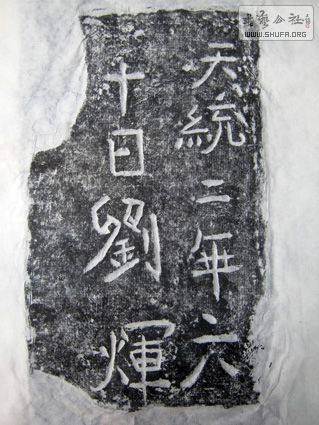 天統二年六
十日劉輝
書藝公社
WWW.SHUFA.ORG